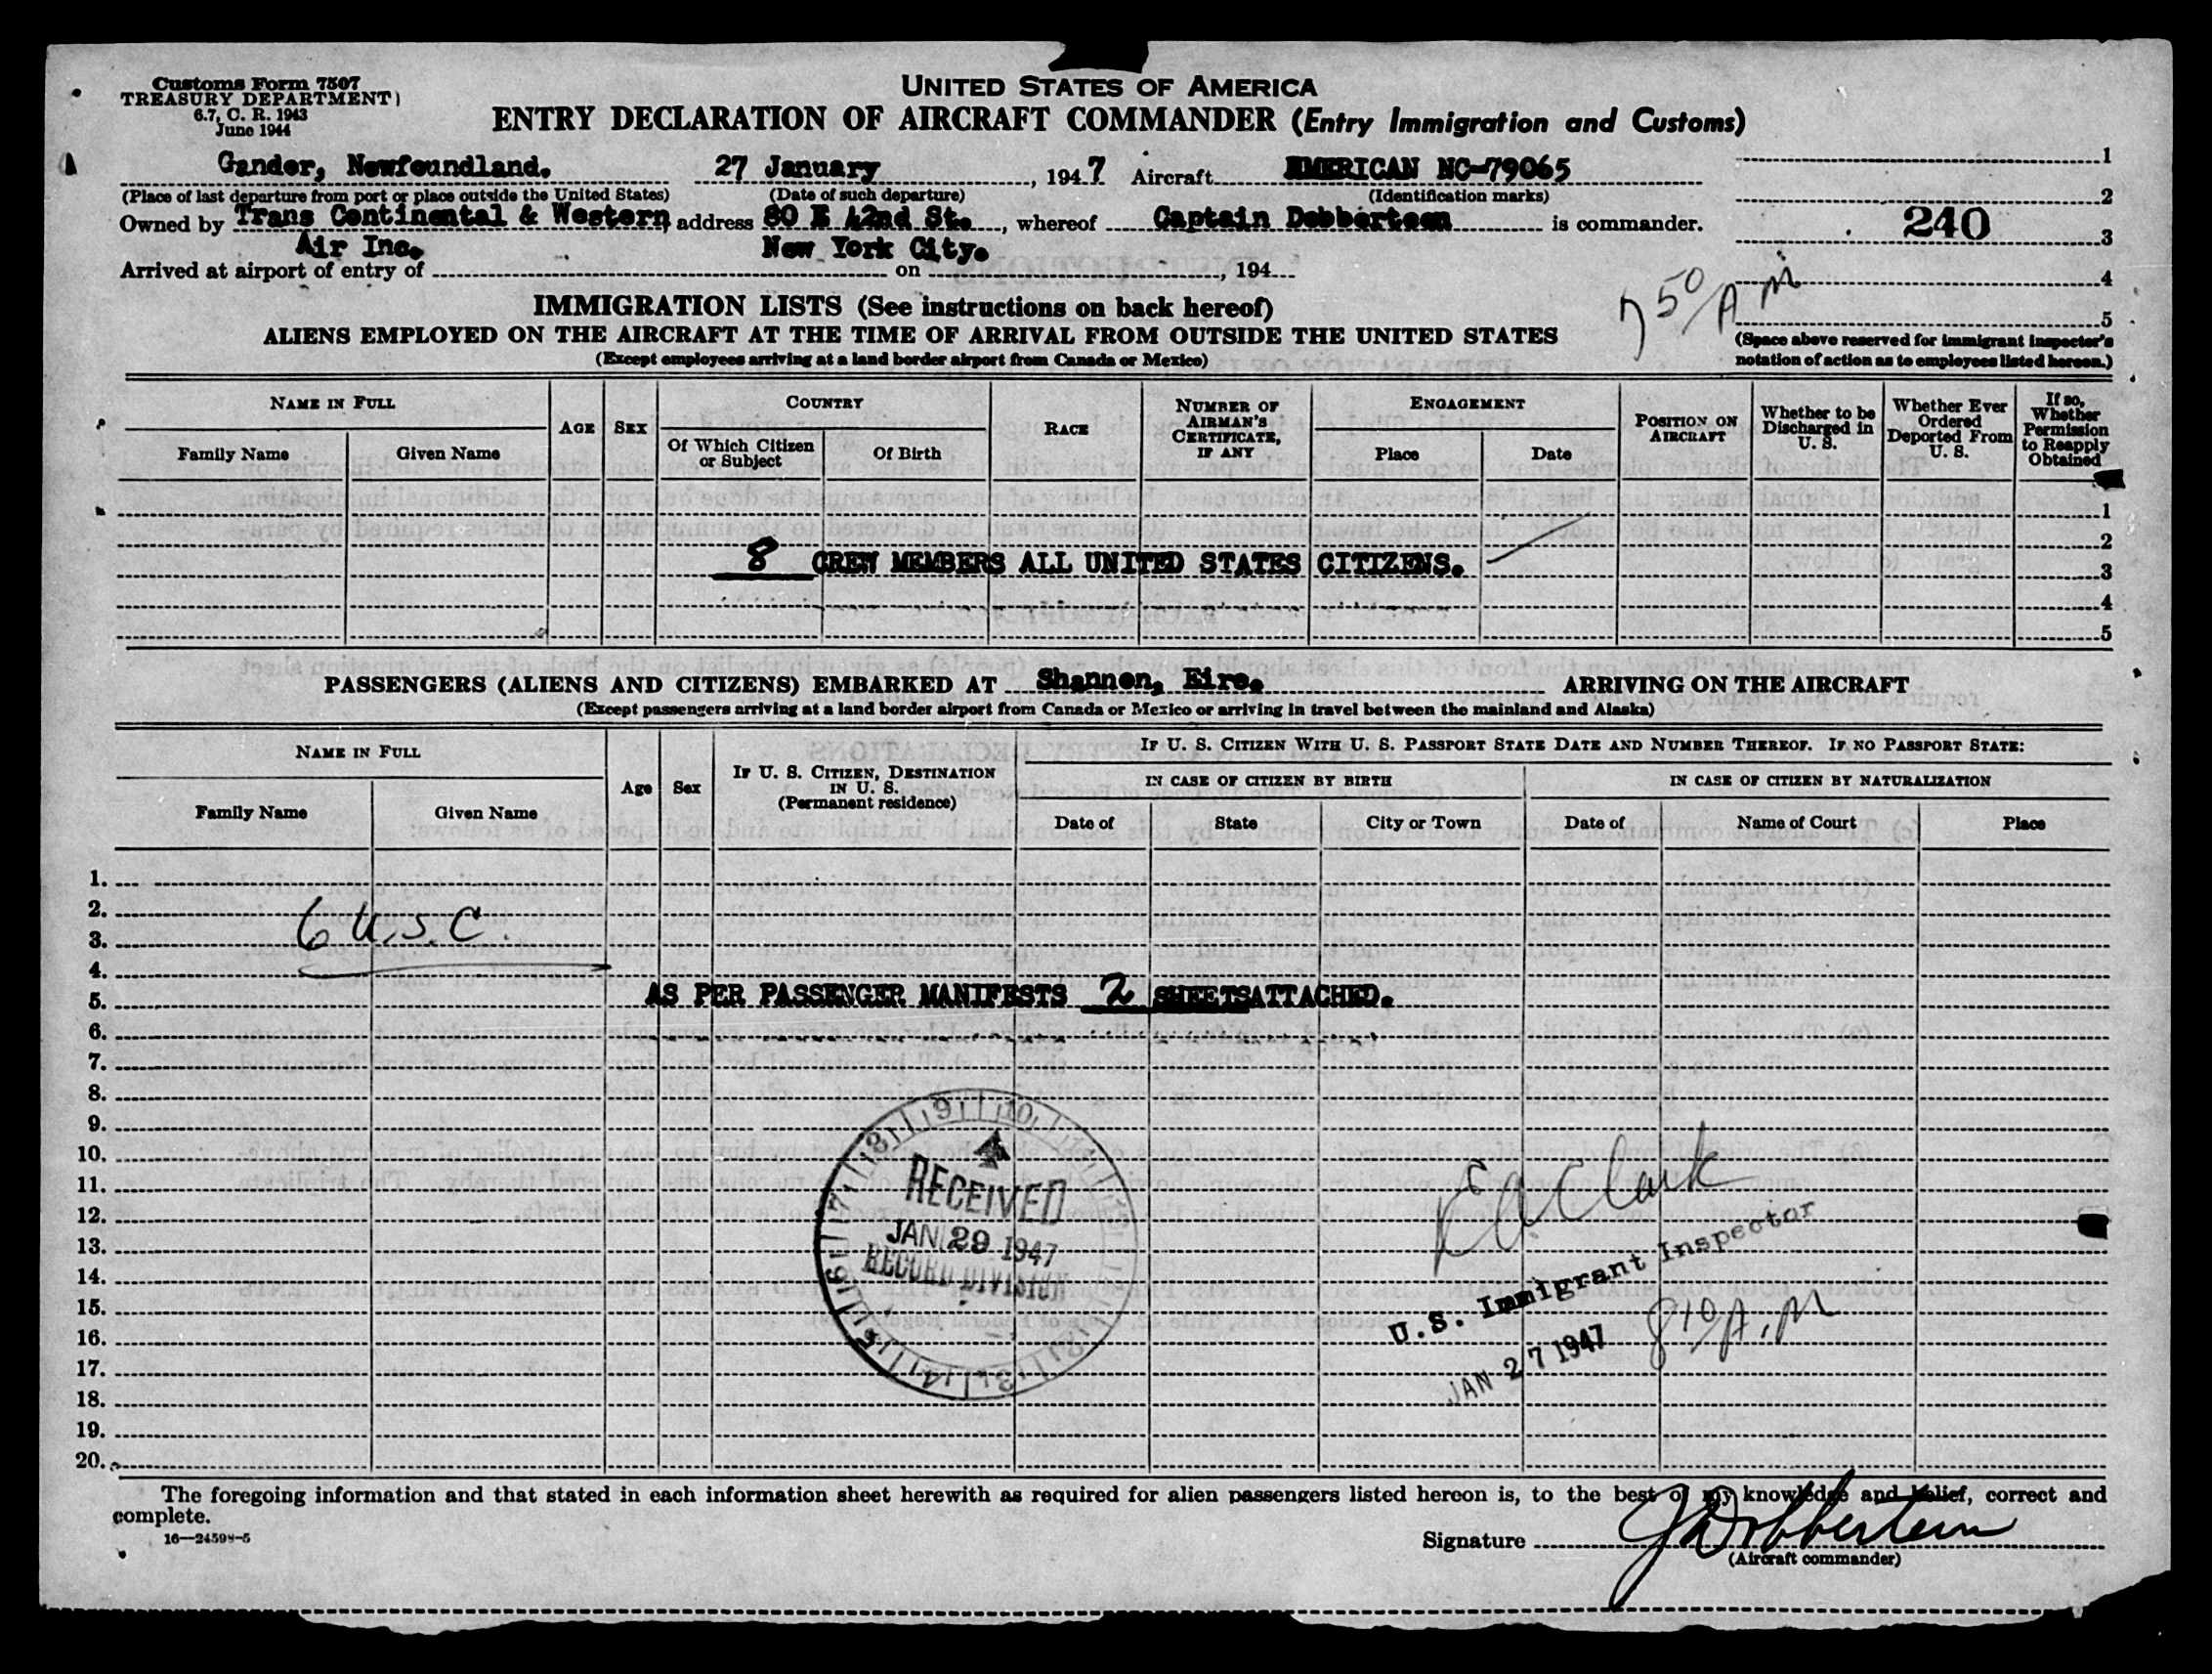 Customs Form 7507
TREASURY DEPARTMENT)
6.7, C. R. 1943
June 1944
UNITED STATES OF AMERICA
ENTRY DECLARATION OF AIRCRAFT COMMANDER (Entry Immigration and Customs)
Gander, Newfoundland. 27 January, 1947 Aircraft AMERICAN NC-79065
(Place of last departure from port or place outside the United States) (Date of such departure) (Identification marks)
Owned by Trans Continental & Western, address 80 E 42nd St., whereof Captain Debberteen is commander.
Air Inc. New York City.
Arrived at airport of entry of on , 194
1
2
240
3
4
5
7 50/A M
(Space above reserved for immigrant inspector's
notation of action as to employees listed hereon.)
IMMIGRATION LISTS (See instructions on back hereof)
ALIENS EMPLOYED ON THE AIRCRAFT AT THE TIME OF ARRIVAL FROM OUTSIDE THE UNITED STATES
(Except employees arriving at a land border airport from Canada or Mexico)
NAME IN FULL
Family Name
Given Name
AGE
SEX
COUNTRY
Of Which Citizen
or Subject
Of Birth
RACE
NUMBER OF
AIRMAN'S
CERTIFICATE,
IF ANY
ENGAGEMENT
Place
Date
POSITION ON
AIRCRAFT
Whether to be
Discharged in
U. S.
Whether Ever
Ordered
Deported From
U. S.
If so,
Whether
Permission
to Reapply
Obtained
1
2
8 CREW MEMBERS ALL UNITED STATES CITIZENS.
3
4
5
PASSENGERS (ALIENS AND CITIZENS) EMBARKED AT Shannon, Eire. ARRIVING ON THE AIRCRAFT
(Except passengers arriving at a land border airport from Canada or Mexico or arriving in travel between the mainland and Alaska)
NAME IN FULL
Family Name
Given Name
Age
Sex
IF U. S. CITIZEN, DESTINATION
IN U. S.
(Permanent residence)
IF U. S. CITIZEN WITH U. S. PASSPORT STATE DATE AND NUMBER THEREOF. IF NO PASSPORT STATE:
IN CASE OF CITIZEN BY BIRTH
IN CASE OF CITIZEN BY NATURALIZATION
Date of
State
City or Town
Date of
Name of Court
Place
1.
2.
6 U.S.C.
3.
4.
5. AS PER PASSENGER MANIFESTS 2 SHEETSATTACHED.
6.
7.
8.
9.
10.
11.
12.
13.
14.
15.
16.
17.
18.
19.
20.
RECEIVED
JAN 29 1947
RECORD DIVISION
EA Clark
U.S. Immigrant Inspector
JAN 27 1947 8 10/A.M
The foregoing information and that stated in each information sheet herewith as required for alien passengers listed hereon is, to the best of my knowledge and belief, correct and
complete.
16—24598-5
Signature
(Aircraft commander)